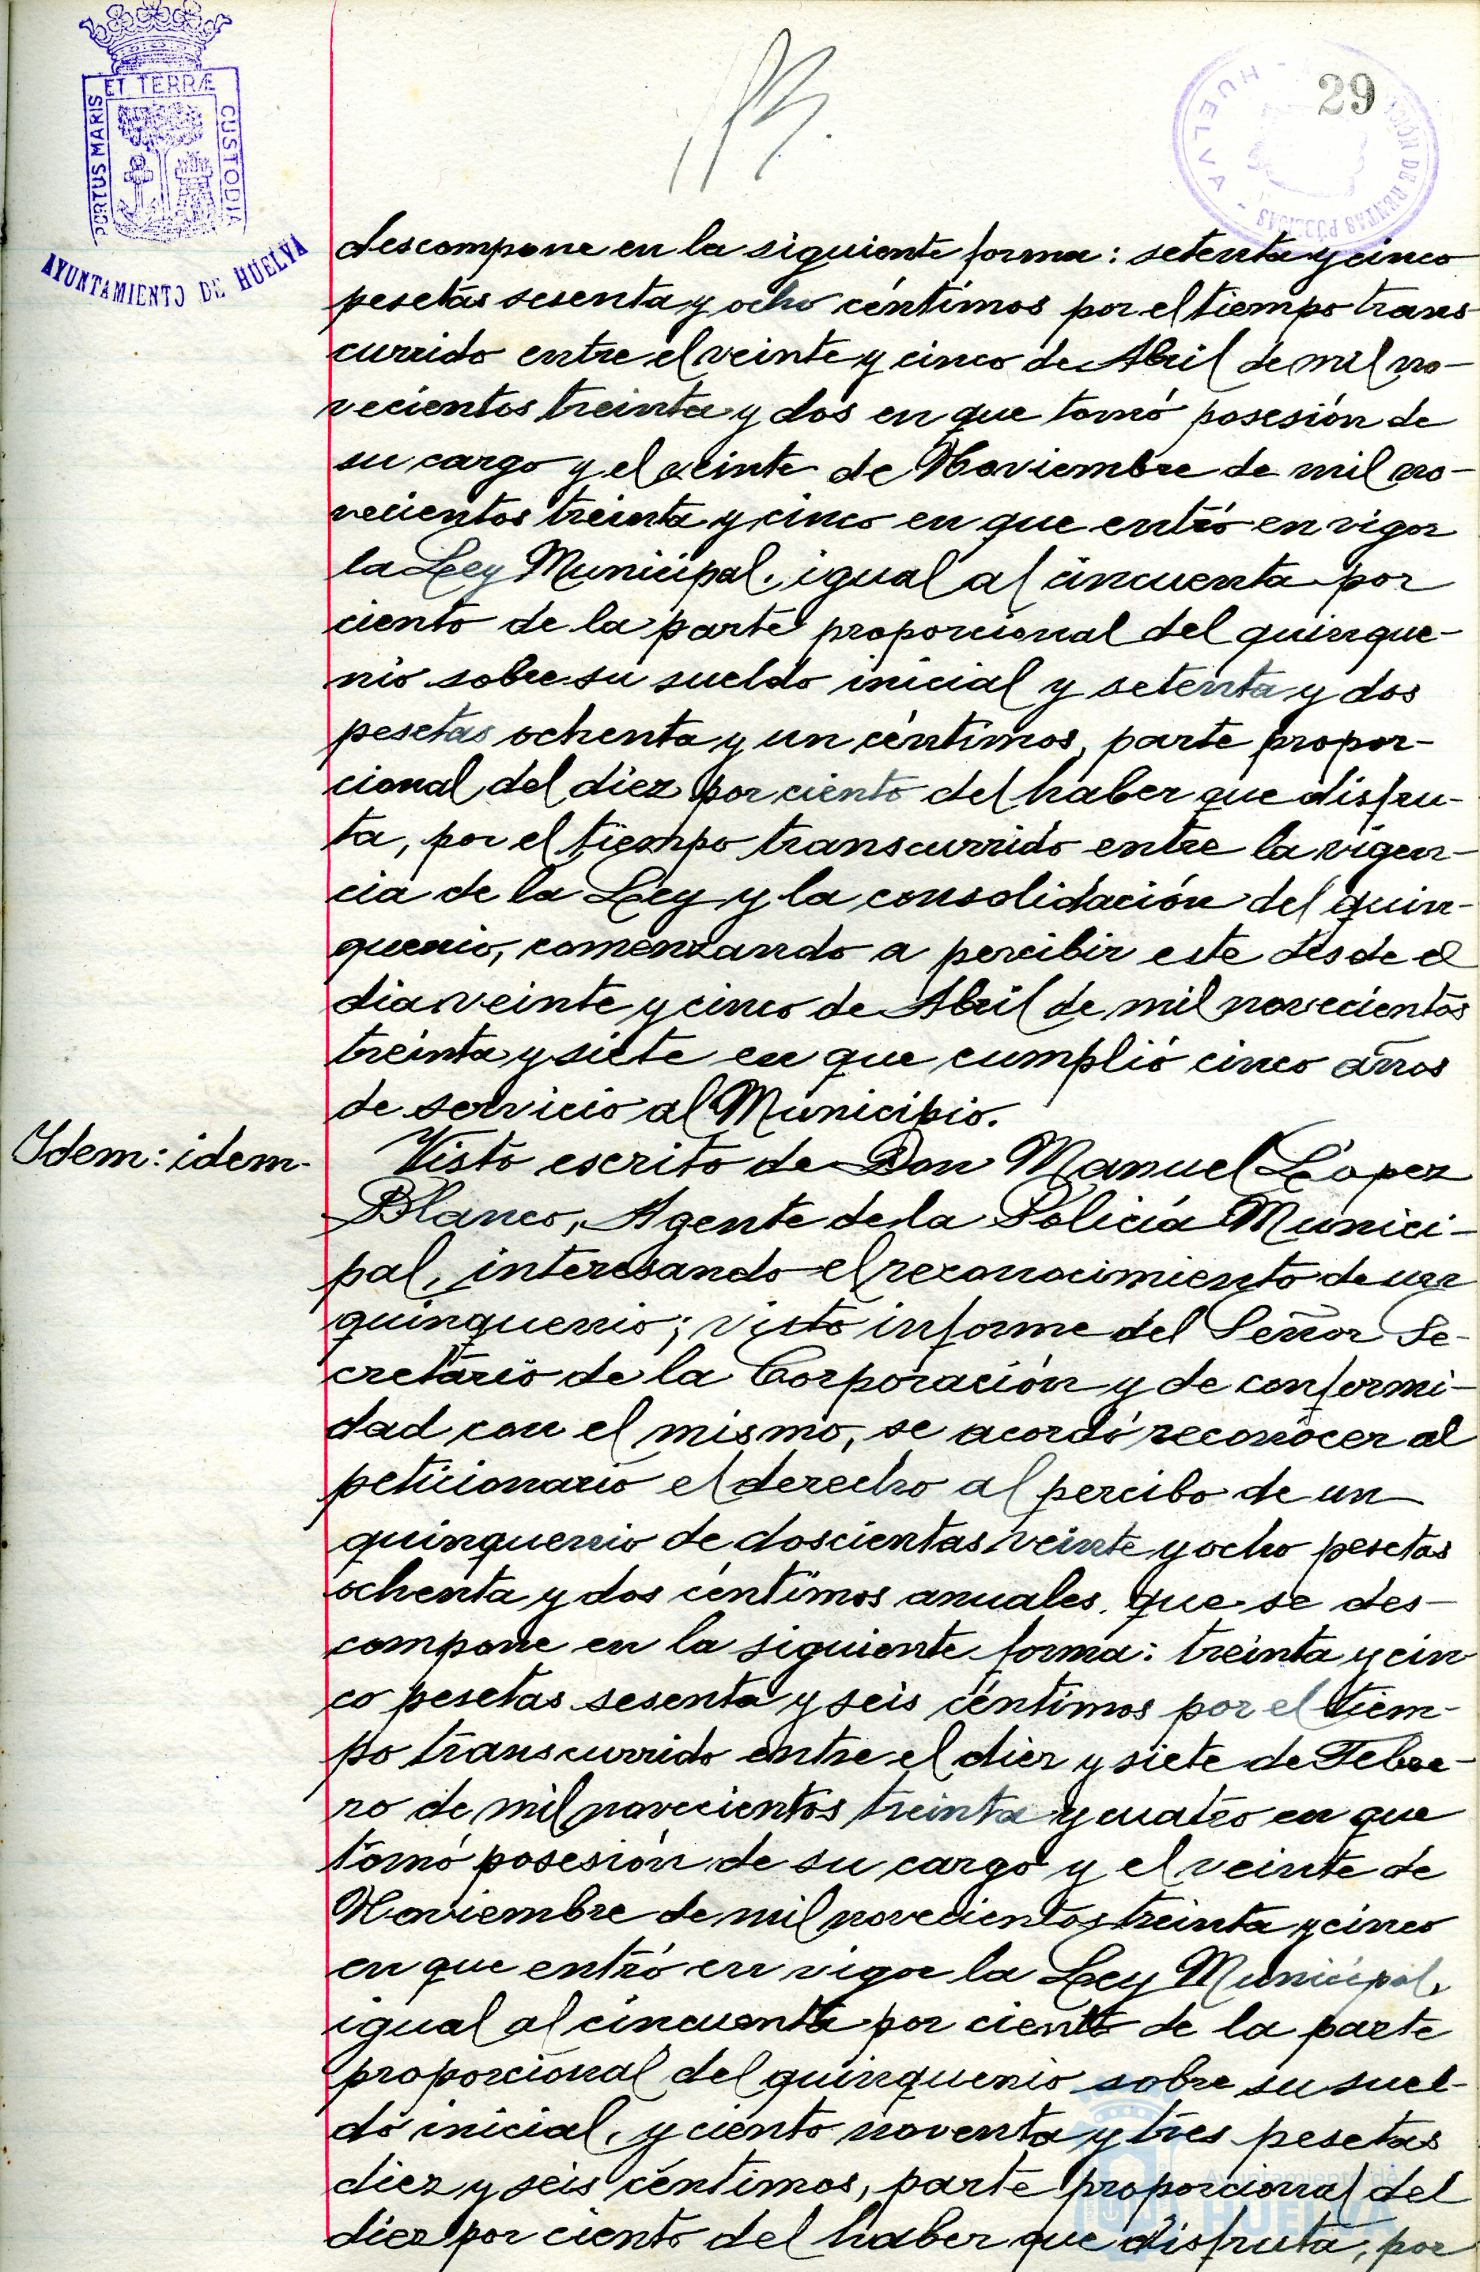 PORTUS MARIS ET TERRÆ CUSTODIA
AYUNTAMIENTO DE HUELVA
29
HUELVA
descompone en la siguiente forma: setenta y cinco
pesetas sesenta y ocho céntimos por el tiempo trans
currido entre el veinte y cinco de Abril de mil no-
vecientos treinta y dos en que tomó posesión de
su cargo y el veinte de Noviembre de mil no-
vecientos treinta y cinco en que entró en vigor
la Ley Municipal, igual al cincuenta por
ciento de la parte proporcional del quinque-
nio sobre su sueldo inicial y setenta y dos
pesetas ochenta y un céntimos, parte propor-
cional del diez por ciento del haber que disfru-
ta, por el tiempo transcurrido entre la vigen-
cia de la Ley y la consolidación del quin-
quenio, comenzando a percibir este desde el
dia veinte y cinco de Abril de mil novecientos
treinta y siete en que cumplió cinco años
de servicio al Municipio.
Idem: idem.
Visto escrito de Don Manuel López
Blanco, Agente de la Policía Munici-
pal, interesando el reconocimiento de un
quinquenio; visto informe del Señor Se-
cretario de la Corporación y de conformi-
dad con el mismo, se acordó reconocer al
peticionario el derecho al percibo de un
quinquenio de doscientas veinte y ocho pesetas
ochenta y dos céntimos anuales, que se des-
compone en la siguiente forma: treinta y cin
co pesetas sesenta y seis céntimos por el tiem-
po transcurrido entre el diez y siete de Febre-
ro de mil novecientos treinta y cuatro en que
tomó posesión de su cargo y el veinte de
Noviembre de mil novecientos treinta y cinco
en que entró en vigor la Ley Municipal,
igual al cincuenta por ciento de la parte
proporcional del quinquenio sobre su suel-
do inicial, y ciento noventa y tres pesetas
diez y seis céntimos, parte proporcional del
diez por ciento del haber que disfruta, por
Ayuntamiento de
HUELVA